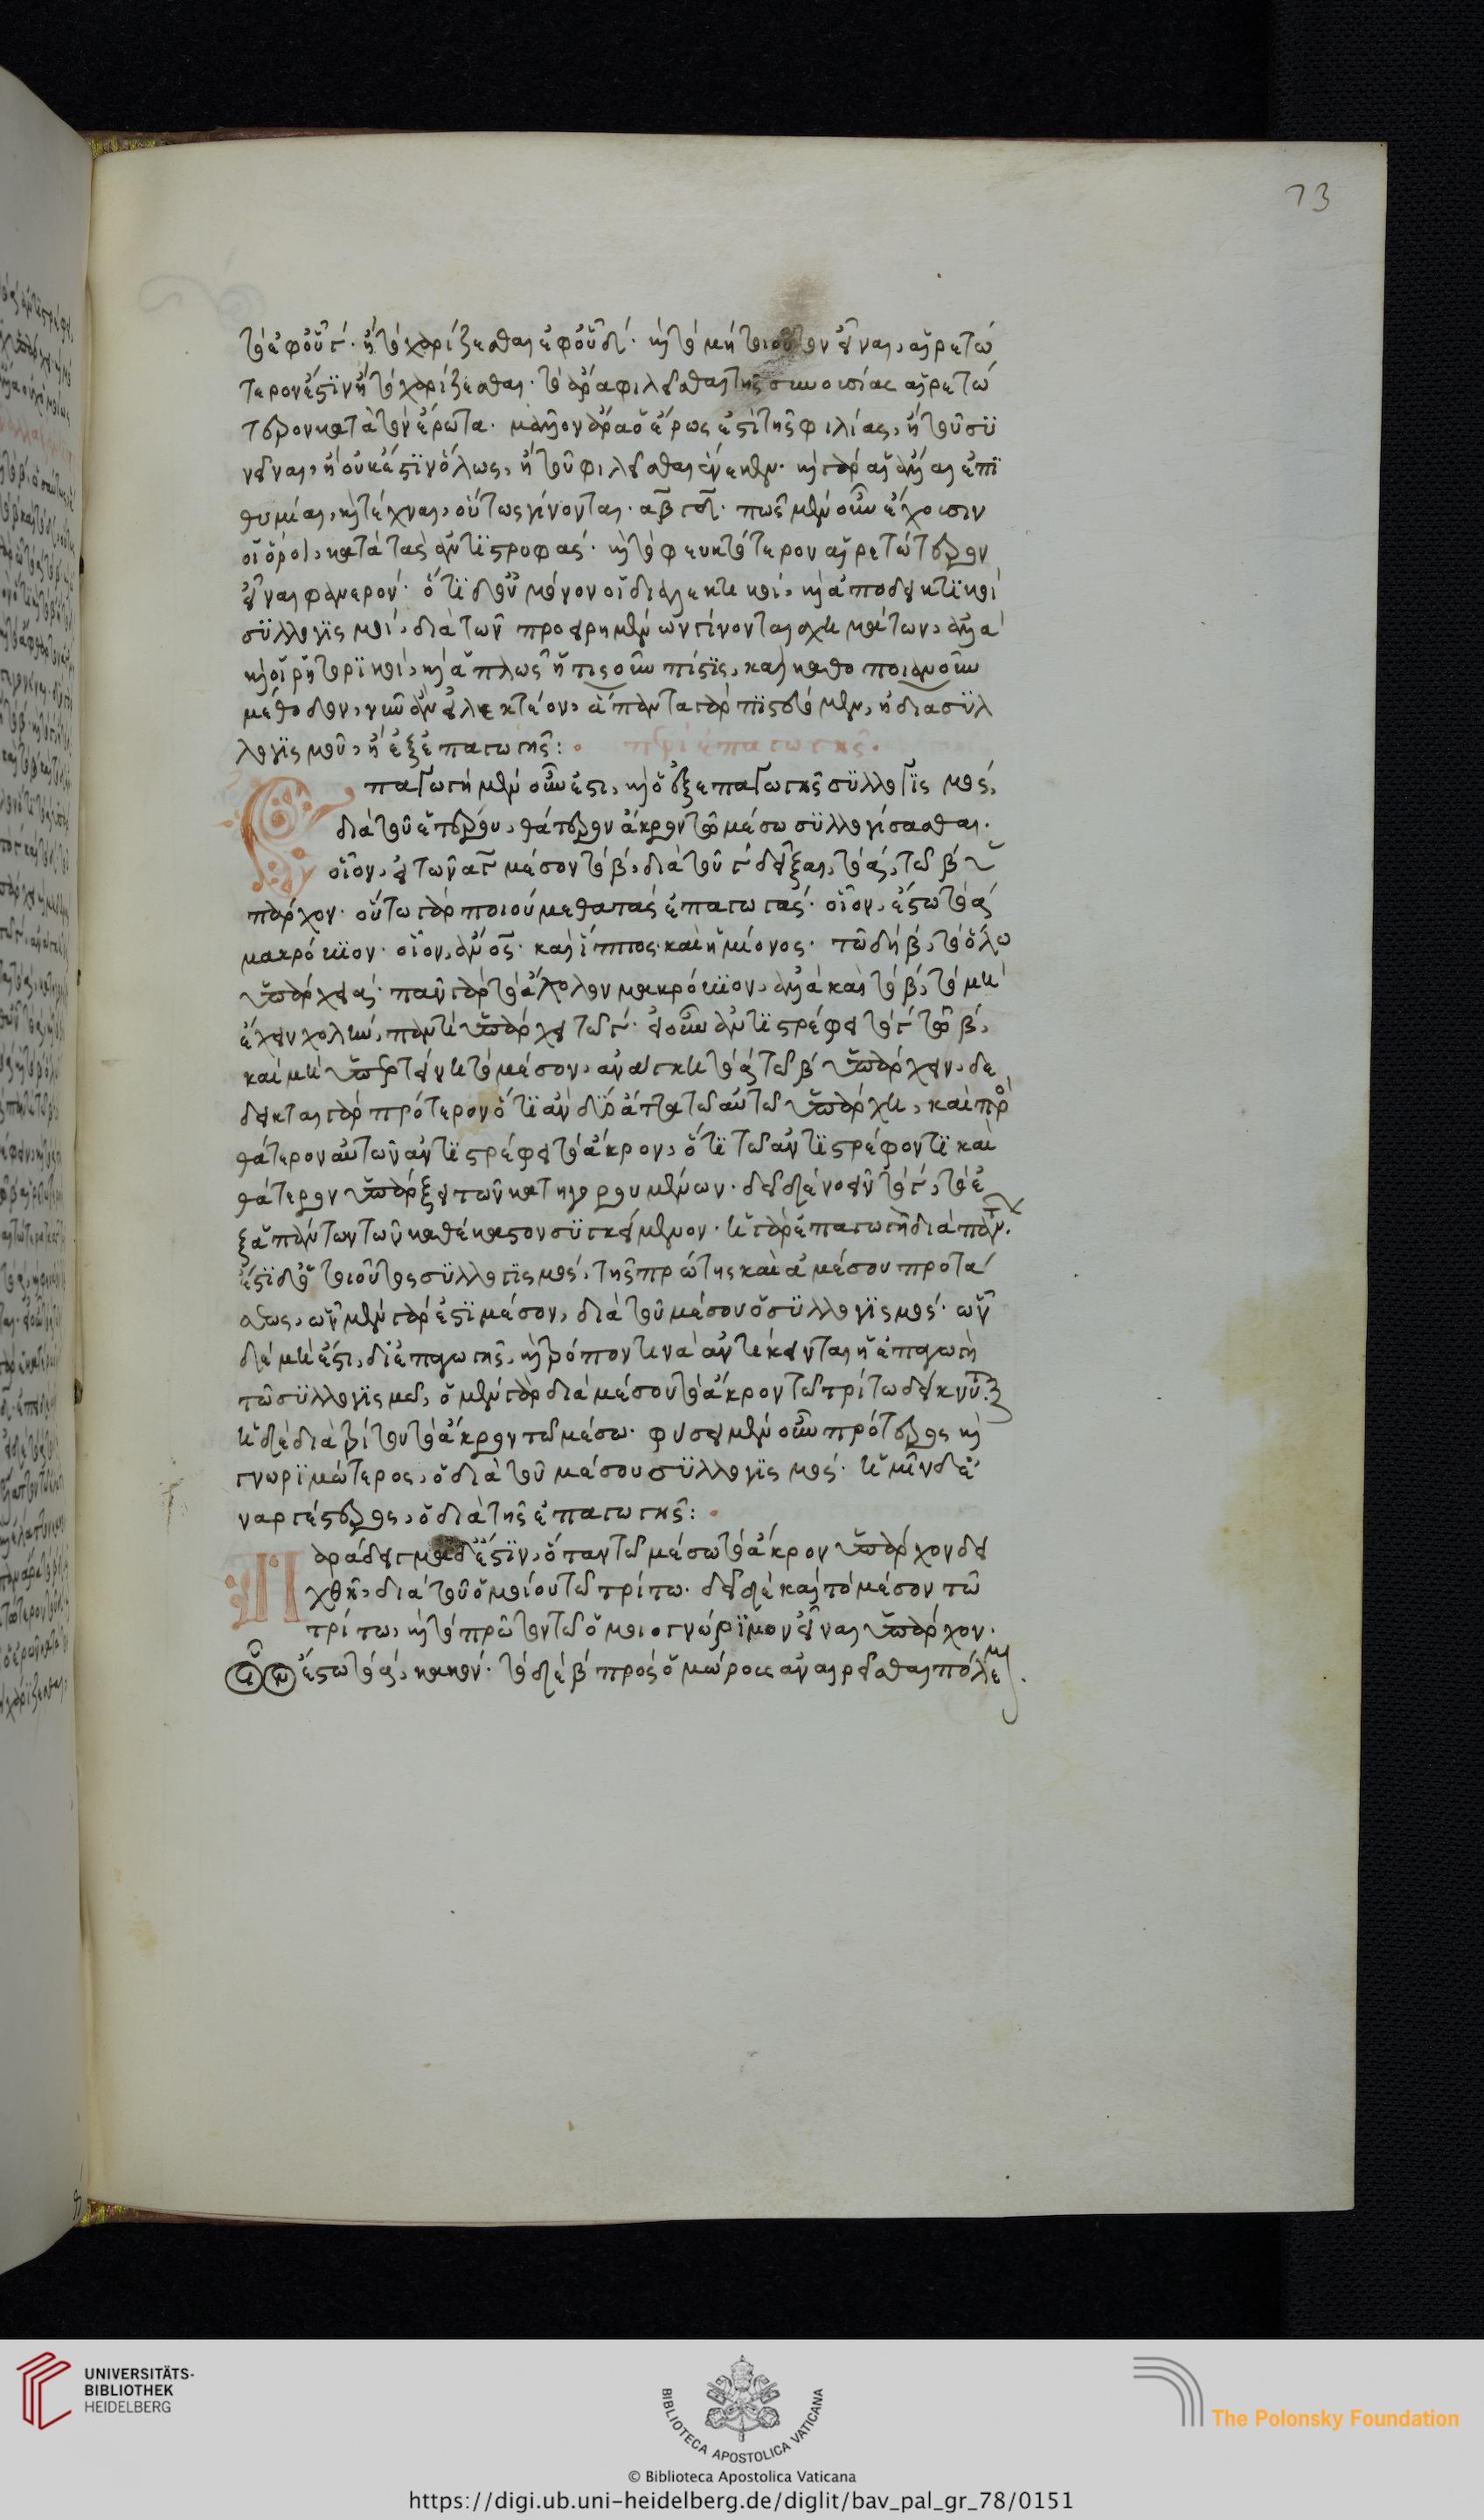 73
τὸ ἐφ' οὗ γ· ἢ τὸ χαρίζεσθαι ἐφ' οὗ δ· καὶ τὸ μὴ τοιοῦτον εἶναι, αἱρετώ
τερον ἐστὶν ἢ τὸ χαρίζεσθαι· τὸ ἄρα φιλεῖσθαι τῆς συνουσίας αἱρετώ
τερον κατὰ τὸν ἔρωτα· μᾶλλον ἄρα ὁ ἔρως ἐστὶ τῆς φιλίας, ἢ τοῦ συ
νεῖναι, ἢ οὐκ ἔστιν ὅλως, ἢ τοῦ φιλεῖσθαι ἕνεκεν· καὶ γὰρ αἱ ἄλλαι ἐπι
θυμίαι, καὶ τέχναι, οὕτως γίνονται· αβγδ· πῶς μὲν οὖν ἔχουσιν
οἱ ὅροι, κατὰ τὰς ἀντιστροφάς· καὶ τὸ φευκτότερον αἱρετώτερον
εἶναι φανερόν· ὅτι δ' οὐ μόνον οἱ διαλεκτικοί, καὶ ἀποδεικτικοὶ
συλλογισμοί, διὰ τῶν προειρημένων γίνονται σχημάτων, ἀλλὰ
καὶ οἱ ῥητορικοί, καὶ ἁπλῶς ἥτις οὖν πίστις, καὶ καθ' ὁποιανοῦν
μέθοδον, νῦν ἂν εἴη λεκτέον, ἅπαντα γὰρ πιστεύομεν, ἢ διὰ συλ
λογισμοῦ, ἢ ἐξ ἐπαγωγῆς:
περὶ ἐπαγωγῆς.
Ἐπαγωγὴ μὲν οὖν ἐστι, καὶ ὁ ἐξ ἐπαγωγῆς συλλογισμός,
διὰ τοῦ ἑτέρου, θάτερον ἄκρον τῷ μέσῳ συλλογίσασθαι.
οἷον, εἰ τῶν αγ μέσον τὸ β, διὰ τοῦ γ δεῖξαι, τὸ α, τῷ β ὑ
πάρχον· οὕτω γὰρ ποιούμεθα τὰς ἐπαγωγάς· οἷον, ἔστω τὸ α
μακρόβιον· οἷον, ἄνος· καὶ ἵππος καὶ ἡμίονος· τῷ δὴ β, τὸ ὅλω
ὑπάρχει α· πᾶν γὰρ τὸ ἄχολον μακρόβιον, ἀλλὰ καὶ τὸ β, τὸ μὴ
ἔχειν χολήν, παντὶ ὑπάρχει τῷ γ· εἰ οὖν ἀντιστρέφει τὸ γ τῷ β,
καὶ μὴ ὑπερτείνει τὸ μέσον, ἀνάγκη τὸ α τῷ β ὑπάρχειν, δέ
δεικται γὰρ πρότερον ὅτι ἂν δύο ἄττα τῷ αὐτῷ ὑπάρχῃ, καὶ πρὸς
θάτερον αὐτῶν ἀντιστρέφει τὸ ἄκρον, ὅτι τῷ ἀντιστρέφοντι καὶ
θάτερον ὑπάρξει τῶν κατηγορουμένων· δεῖ δὲ νοεῖν τὸ γ, τὸ ἐ
ξ ἁπάντων τῶν καθέκαστον συγκείμενον· ἡ γὰρ ἐπαγωγὴ διὰ πάντ.
ἔστι δ' ὁ τοιοῦτος συλλογισμός, τῆς πρώτης καὶ ἀμέσου προτά
σεως, ὧν μὲν γάρ ἐστι μέσον, διὰ τοῦ μέσου ὁ συλλογισμός· ὧν
δὲ μή ἐστι, δι' ἐπαγωγῆς, καὶ τρόπον τινὰ ἀντίκειται ἡ ἐπαγωγὴ
τῷ συλλογισμῷ, ὁ μὲν γὰρ διὰ μέσου τὸ ἄκρον τῷ τρίτῳ δείκνυσ.
ἡ δὲ διὰ τρίτου τὸ ἄκρον τῷ μέσῳ· φύσει μὲν οὖν πρότερος καὶ
γνωριμώτερος, ὁ διὰ τοῦ μέσου συλλογισμός· ἡμῖν δ' ἐ
ναργέστερος, ὁ διὰ τῆς ἐπαγωγῆς:
Παράδειγμα δ' ἐστίν, ὅταν τῷ μέσῳ τὸ ἄκρον ὑπάρχον δει
χθῇ, διὰ τοῦ ὁμοίου τῷ τρίτῳ· δεῖ δὲ καὶ τὸ μέσον τῷ
τρίτῳ, καὶ τὸ πρῶτον τῷ ὁμοίῳ γνώριμον εἶναι ὑπάρχον.
ἔστω τὸ α, κακόν· τὸ δὲ β πρὸς ὁμόρους ἀναιρεῖσθαι πόλεμ.
UNIVERSITÄTS-
BIBLIOTHEK
HEIDELBERG
BIBLIOTECA APOSTOLICA VATICANA
The Polonsky Foundation
© Biblioteca Apostolica Vaticana
https://digi.ub.uni-heidelberg.de/diglit/bav_pal_gr_78/0151